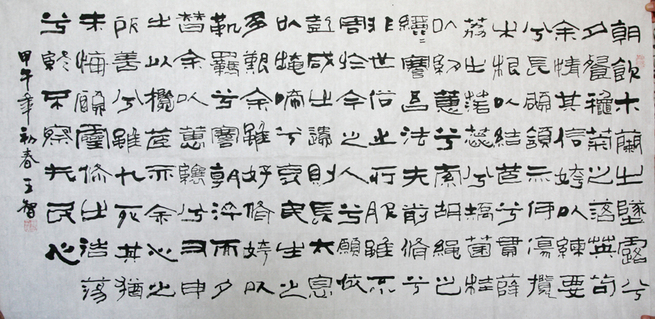 朝飲木蘭之墜露兮
夕餐穐菊之落英苟
余情其信姱以練要
兮長顑頷亦何傷攬
木根以結茝兮貫薜
荔之落蕊兮矯菌桂
以紉蕙兮索胡繩之
纚〻謇吾法夫前脩兮
非世俗之所服雖不
周於今之人兮願依
彭咸之遺則長太息
以掩啼兮哀民生之
多艱余雖好脩姱以
鞿羈兮謇朝誶而夕
替余以蕙纕兮又申
之以攬茝亦余心之
所善兮雖九死其猶
未悔願靈脩之浩蕩
兮終不察夫民心
甲午年初春王智